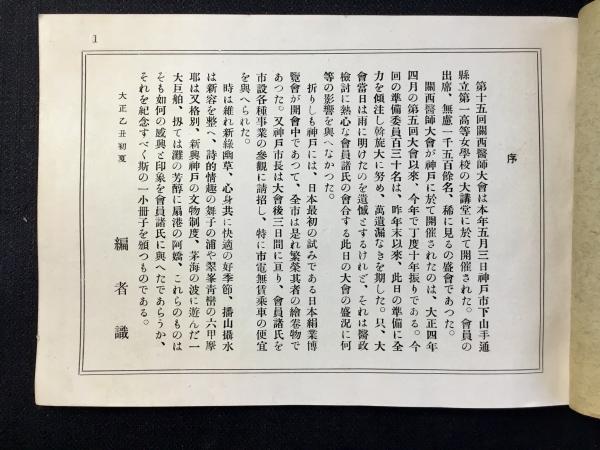 1
序
第十五回關西醫師大會は本年五月三日神戸市下山手通
縣立第一高等女學校の大講堂に於て開催された。會員の
出席、無慮一千五百餘名、稀に見るの盛會であつた。
關西醫師大會が神戸に於て開催されたのは、大正四年
四月の第五回大會以來、今年で丁度十年振りである。今
回の準備委員百三十名は、昨年末以來、此日の準備に全
力を傾注し斡旋大に努め、萬遺漏なきを期した。只、大
會當日は雨に明けたのを遺憾とするけれど、それは醫政
檢討に熱心な會員諸氏の會合する此日の大會の盛況に何
等の影響を與へなかつた。
折りしも神戸には、日本最初の試みである日本絹業博
覽會が開會中であつて、全市は是れ繁榮其者の繪卷物で
あつた。又神戸市長は大會後三日間に亘り、會員諸氏を
市設各種事業の參觀に請招し、特に市電無賃乘車の便宜
を與へられた。
時は維れ新綠幽草、心身共に快適の好季節、播山攝水
は新容を整へ、詩的情趣の舞子の浦や翠峯靑巒の六甲摩
耶は又格別、新興神戸の文物制度、茅海の波に遊んだ一
大巨舶、扨ては灘の芳醇に扇港の阿嬌、これらのものは
そも如何の感興と印象を會員諸氏に與へたであらうか、
それを紀念すべく斯の一小冊子を頒つものである。
大正乙丑初夏
編者識